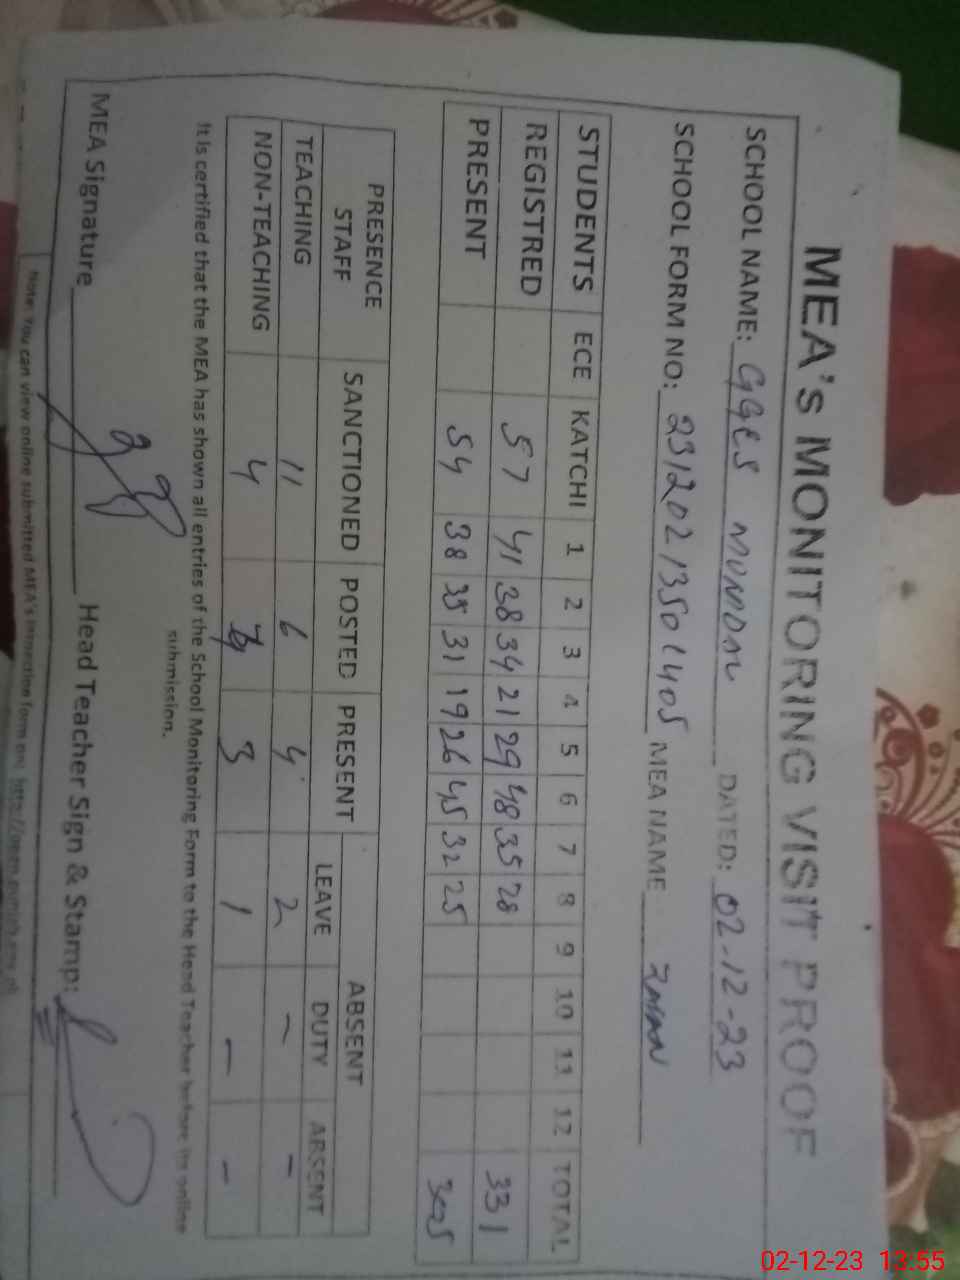 MEA's MONITORING VISIT PROOF
SCHOOL NAME: GGES MUNDAN DATED: 02-12-23
SCHOOL FORM NO: 23120213501405 MEA NAME
STUDENTS ECE KATCHI 1 2 3 4 5 6 7 8 9 10 11 12 TOTAL
REGISTRED 57 41 38 34 21 29 48 35 28 331
PRESENT 54 38 35 31 19 26 45 32 25 305
PRESENCE STAFF SANCTIONED POSTED PRESENT ABSENT
LEAVE DUTY ABSENT
TEACHING 11 6 4 2 - -
NON-TEACHING 4 4 3 1 - -
It is certified that the MEA has shown all entries of the School Monitoring Form to the Head Teacher before its online
submission.
MEA Signature Head Teacher Sign & Stamp:
Note: You can view online submitted MEA's inspection form on:
02-12-23 13:55